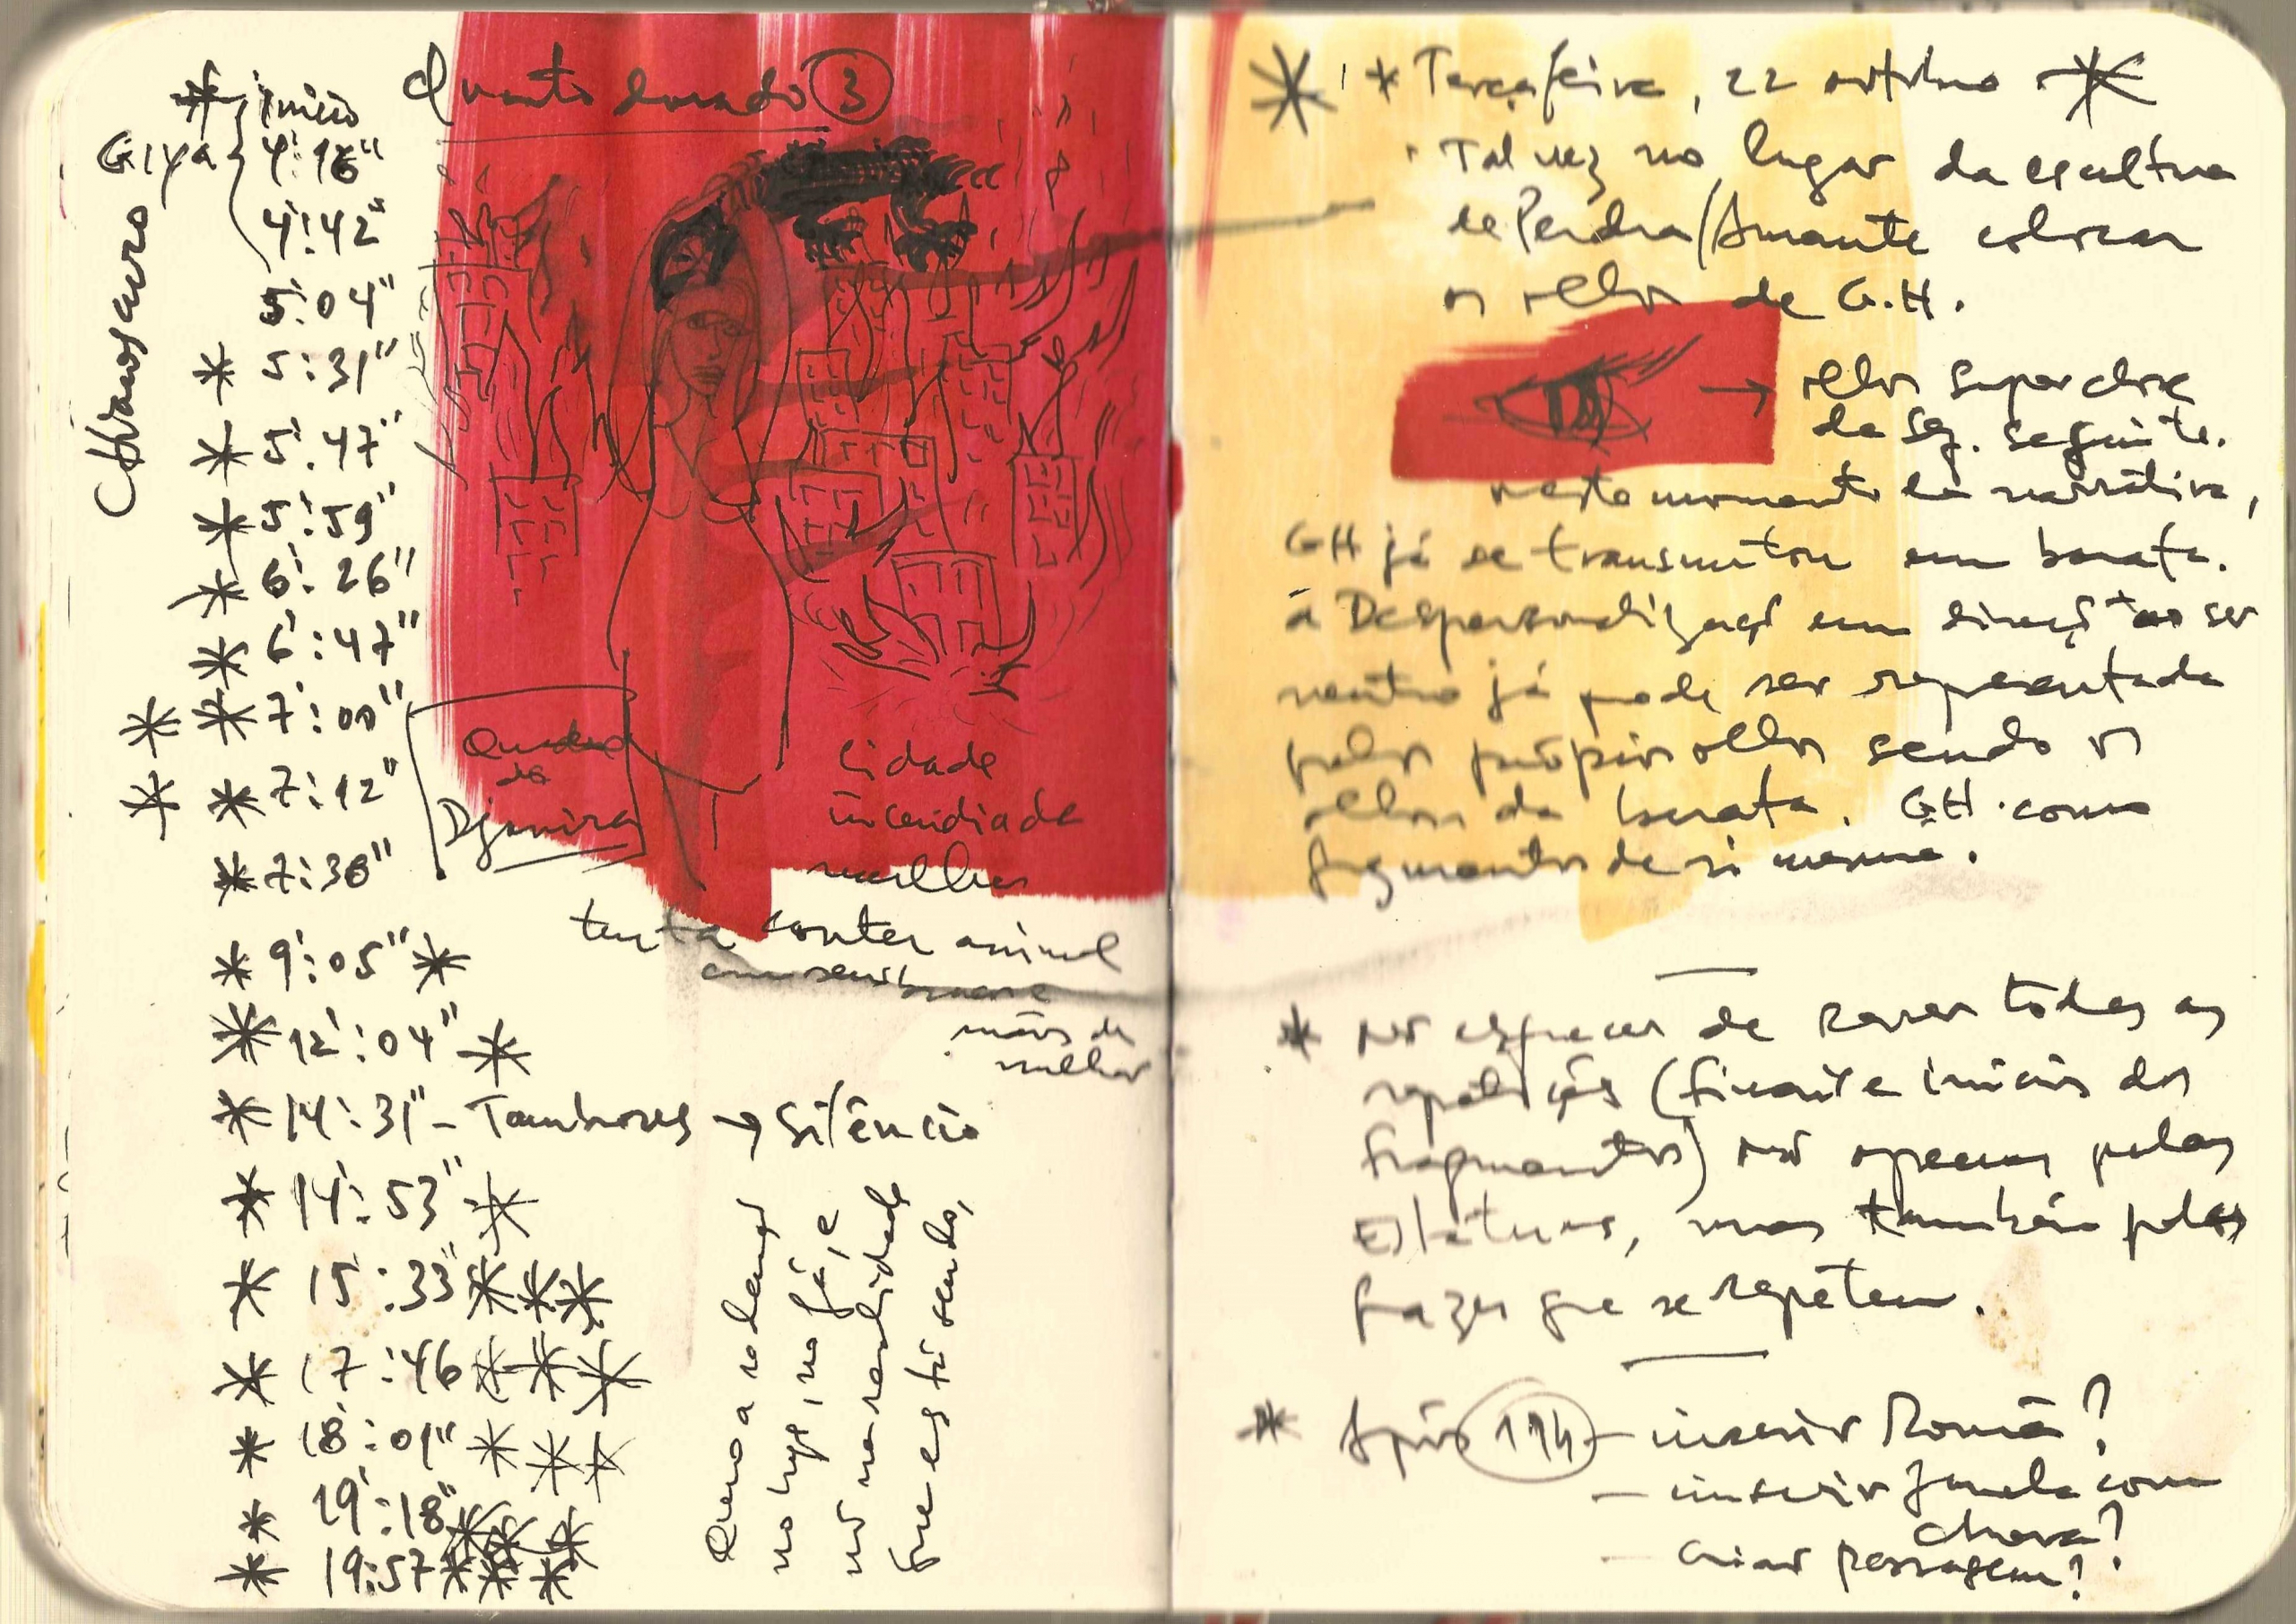 * início
Giya 4':16"
4':42"
5':04"
* 5':31"
* 5':47"
* 5':59"
* 6':26"
* 6':47"
* * 7':00"
* * 7':12"
* 7':30"
* 9':05" *
* 12':04" *
* 14':31" - Tambores → Silêncio
* 14':53" *
* 15':33" * * *
* 17':46 * * *
* 18':01" * * *
* 19':18" * * *
* 19:57 * * *
Quarto dourado 3
Quadro
da
Djanira
Cidade
incendiada
mulher
tenta conter animal
mãos de
mulher
Quero a redenção
no hoje, no já, e
não na realidade
que está sendo,
* * Terça-feira, 22 outubro *
Talvez no lugar da escultura
de Pedra/Amante colocar
os olhos de G.H.
→ olhos super close
da seq. seguinte.
neste momento da narrativa,
GH já se transmutou em barata.
a Despersonalização em direção ao ser
neutro já pode ser representada
pelos próprios olhos sendo os
olhos da barata. GH como
fragmentos de si mesma.
* não esquecer de rever todas as
repetições (finais e inícios dos
fragmentos) não apenas pelas
leituras, mas também pelas
frazes que se repetem.
* Após 174 - inserir Romã?
- inserir Janela com
chuva?
- criar passagem?